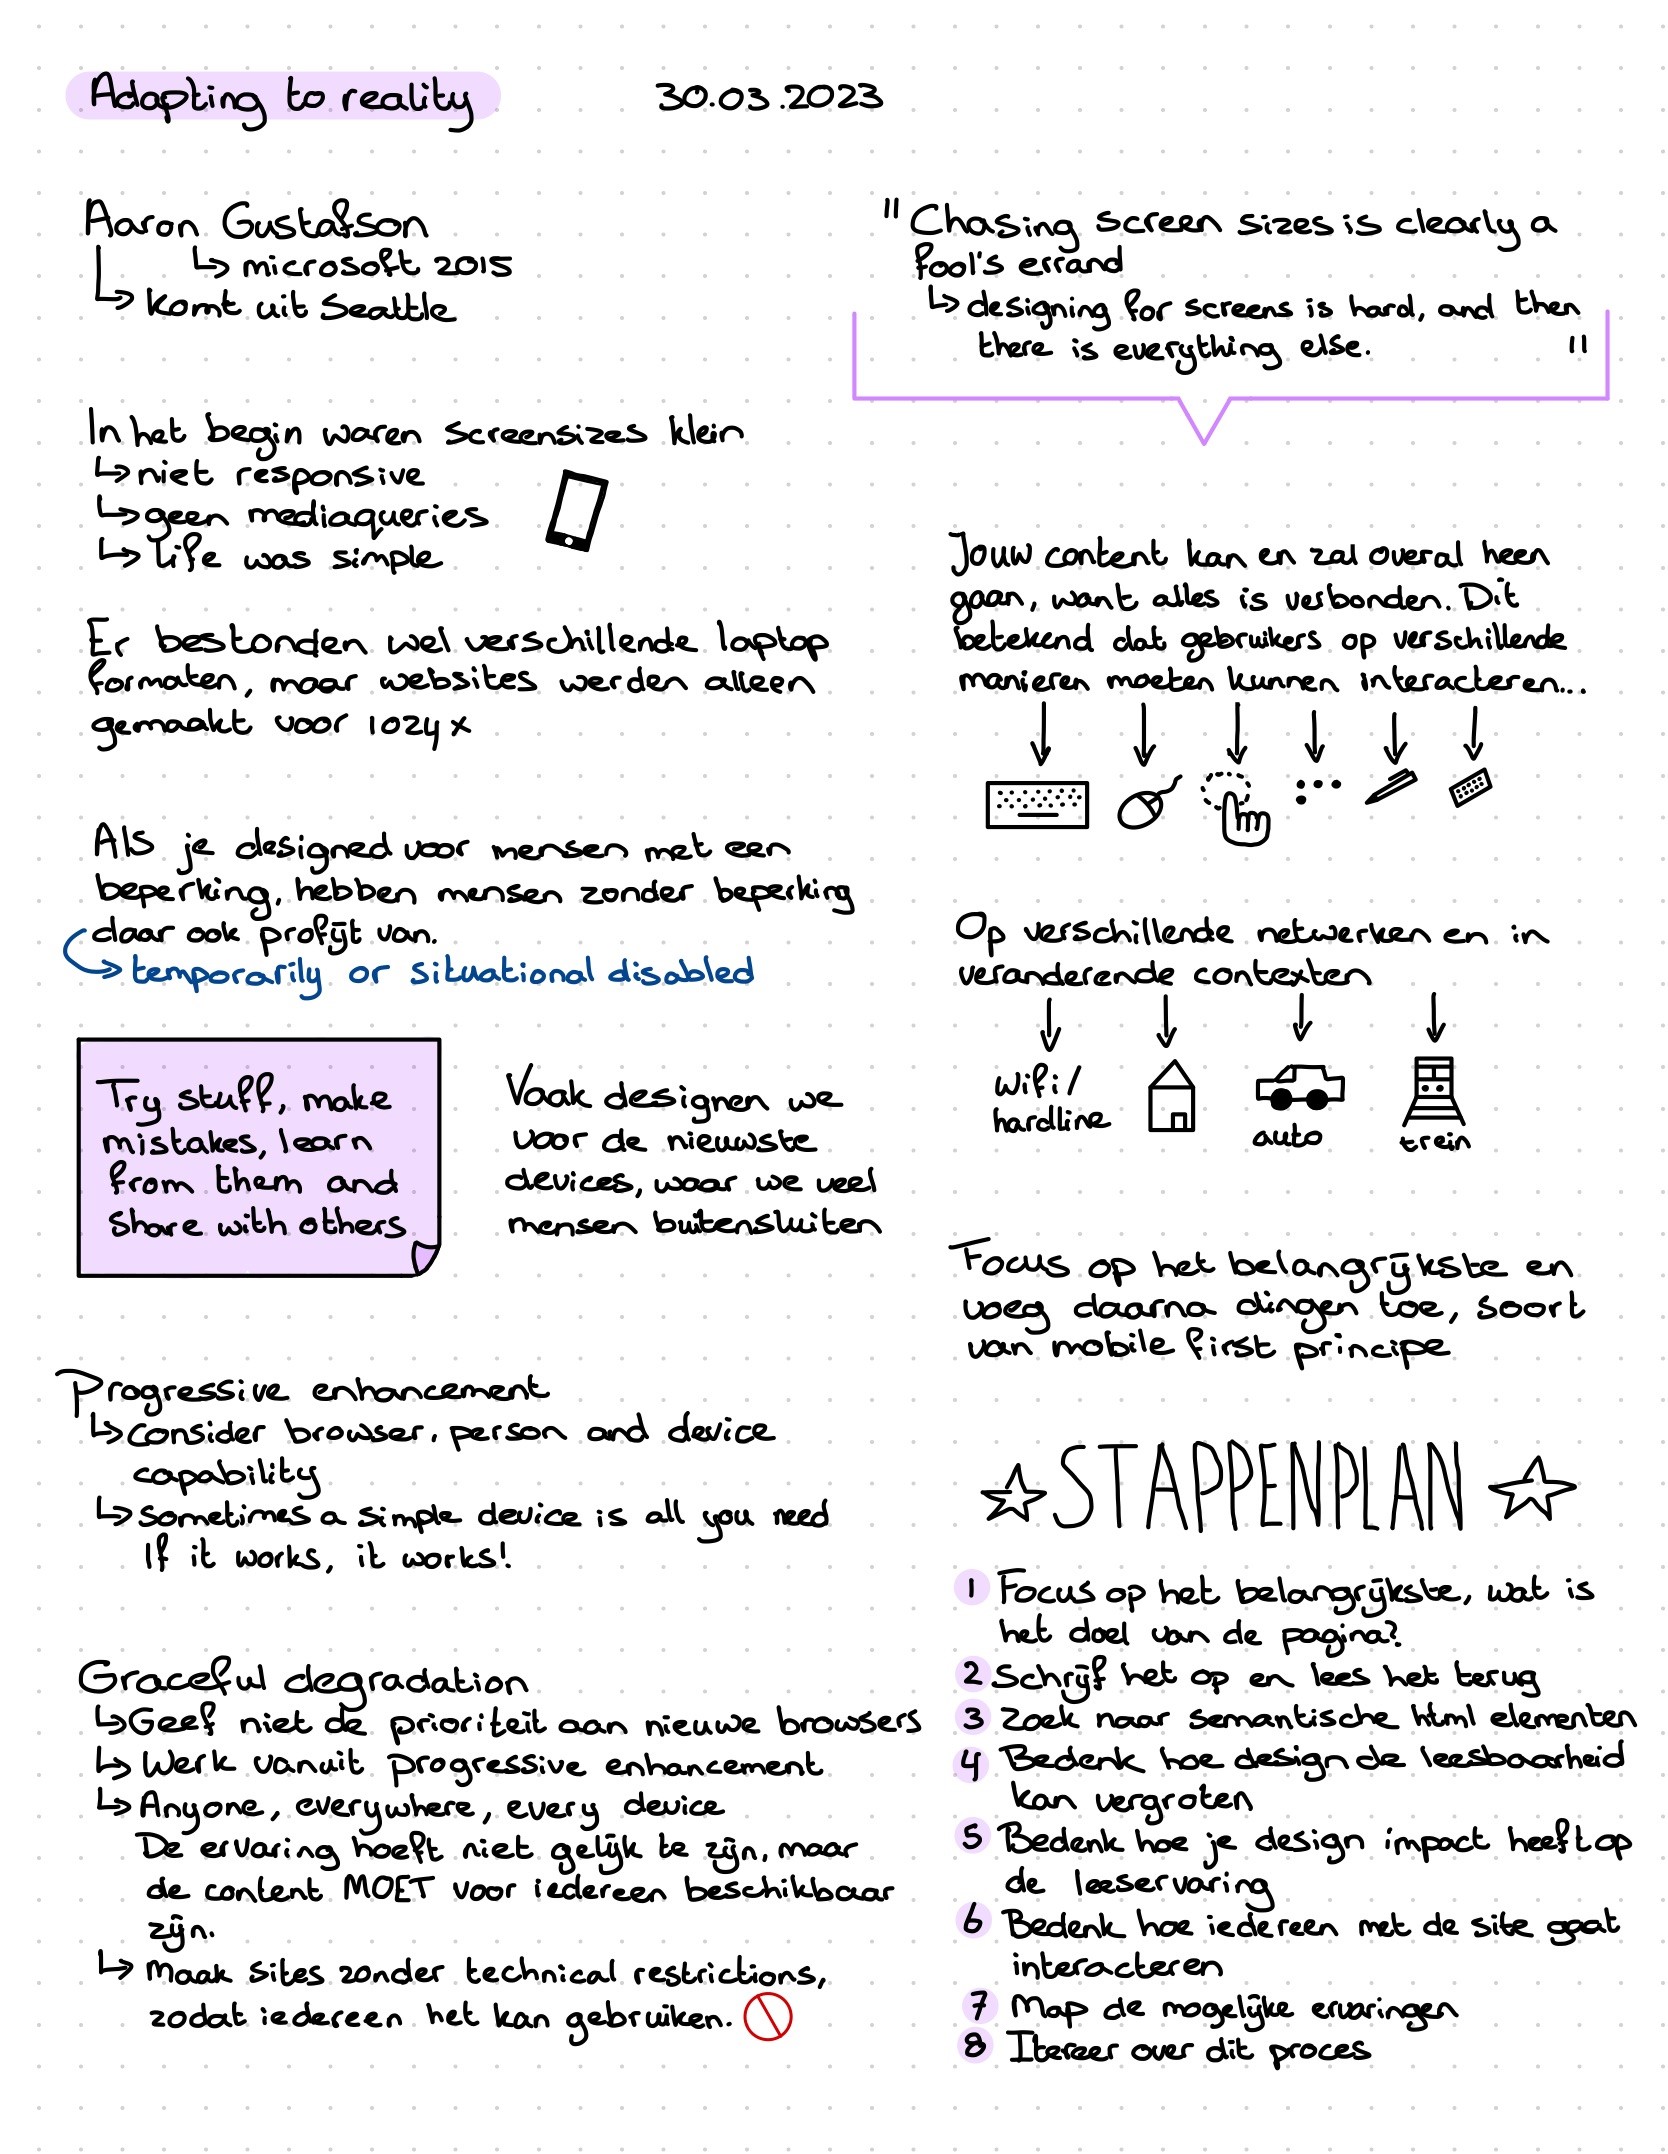 Adapting to reality
30.03.2023
Aaron Gustafson
↳ microsoft 2015
↳ komt uit Seattle
In het begin waren screensizes klein
↳ niet responsive
↳ geen mediaqueries
↳ life was simple
Er bestonden wel verschillende laptop
formaten, maar websites werden alleen
gemaakt voor 1024 x
Als je designed voor mensen met een
beperking, hebben mensen zonder beperking
daar ook profijt van.
↳ temporarily or situational disabled
Try stuff, make
mistakes, learn
from them and
share with others
Vaak designen we
voor de nieuwste
devices, waar we veel
mensen buitensluiten
Progressive enhancement
↳ consider browser, person and device
capability
↳ sometimes a simple device is all you need
If it works, it works!
Graceful degradation
↳ Geef niet de prioriteit aan nieuwe browsers
↳ Werk vanuit progressive enhancement
↳ Anyone, everywhere, every device
De ervaring hoeft niet gelijk te zijn, maar
de content MOET voor iedereen beschikbaar
zijn.
↳ Maak sites zonder technical restrictions,
zodat iedereen het kan gebruiken.
" Chasing screen sizes is clearly a
fool's errand
↳ designing for screens is hard, and then
there is everything else. "
Jouw content kan en zal overal heen
gaan, want alles is verbonden. Dit
betekend dat gebruikers op verschillende
manieren moeten kunnen interacteren...
Op verschillende netwerken en in
veranderende contexten
wifi/
hardline
auto
trein
Focus op het belangrijkste en
voeg daarna dingen toe, soort
van mobile first principe
STAPPENPLAN
1 Focus op het belangrijkste, wat is
het doel van de pagina?
2 Schrijf het op en lees het terug
3 Zoek naar semantische html elementen
4 Bedenk hoe design de leesbaarheid
kan vergroten
5 Bedenk hoe je design impact heeft op
de leeservaring
6 Bedenk hoe iedereen met de site gaat
interacteren
7 Map de mogelijke ervaringen
8 Itereer over dit proces